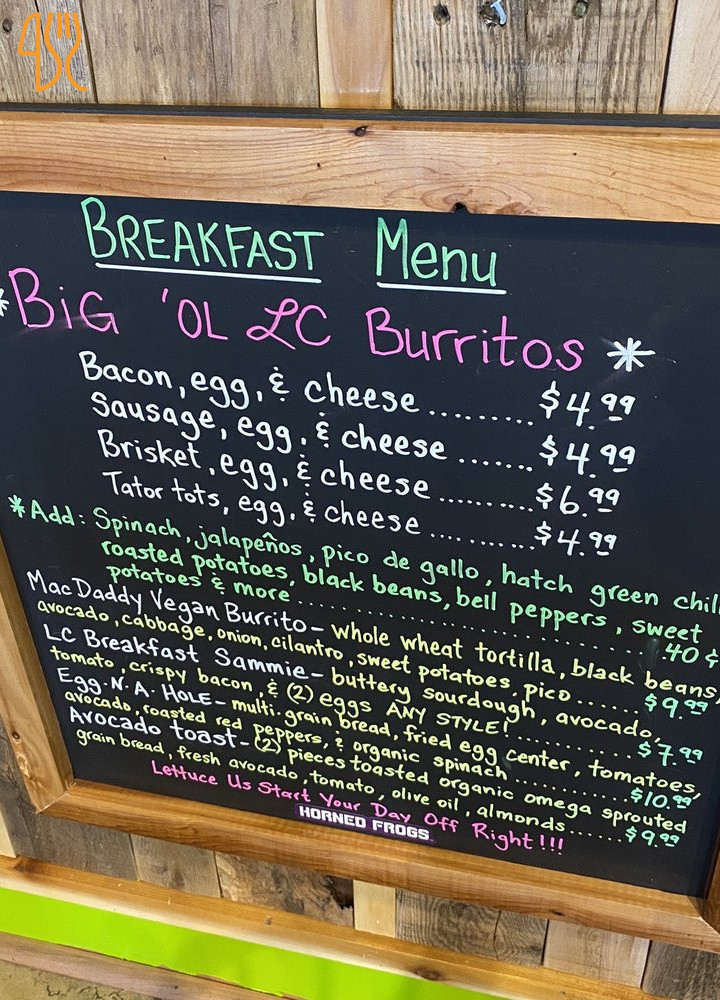 BREAKFAST Menu
*BiG 'OL LC Burritos *
Bacon, egg, & cheese ......... $4.99
Sausage, egg, & cheese ....... $4.99
Brisket, egg, & cheese ......... $6.99
Tator tots, egg, & cheese .......... $4.99
*Add: Spinach, jalapeños, pico de gallo, hatch green chil
roasted potatoes, black beans, bell peppers, sweet
potatoes & more ........................ .40¢
MacDaddy Vegan Burrito - whole wheat tortilla, black beans,
avocado, cabbage, onion, cilantro, sweet potatoes, pico ....... $9.99
LC Breakfast Sammie - buttery sourdough, avocado,
tomato, crispy bacon, & (2) eggs ANY STYLE! ............ $7.99
Egg.N.A.HOLE - multi-grain bread, fried egg center, tomatoes,
avocado, roasted red peppers, & organic spinach ............ $10.99
Avocado toast - (2) pieces toasted organic omega sprouted
grain bread, fresh avocado, tomato, olive oil, almonds ....... $9.99
Lettuce Us Start Your Day Off Right!!!
HORNED FROGS